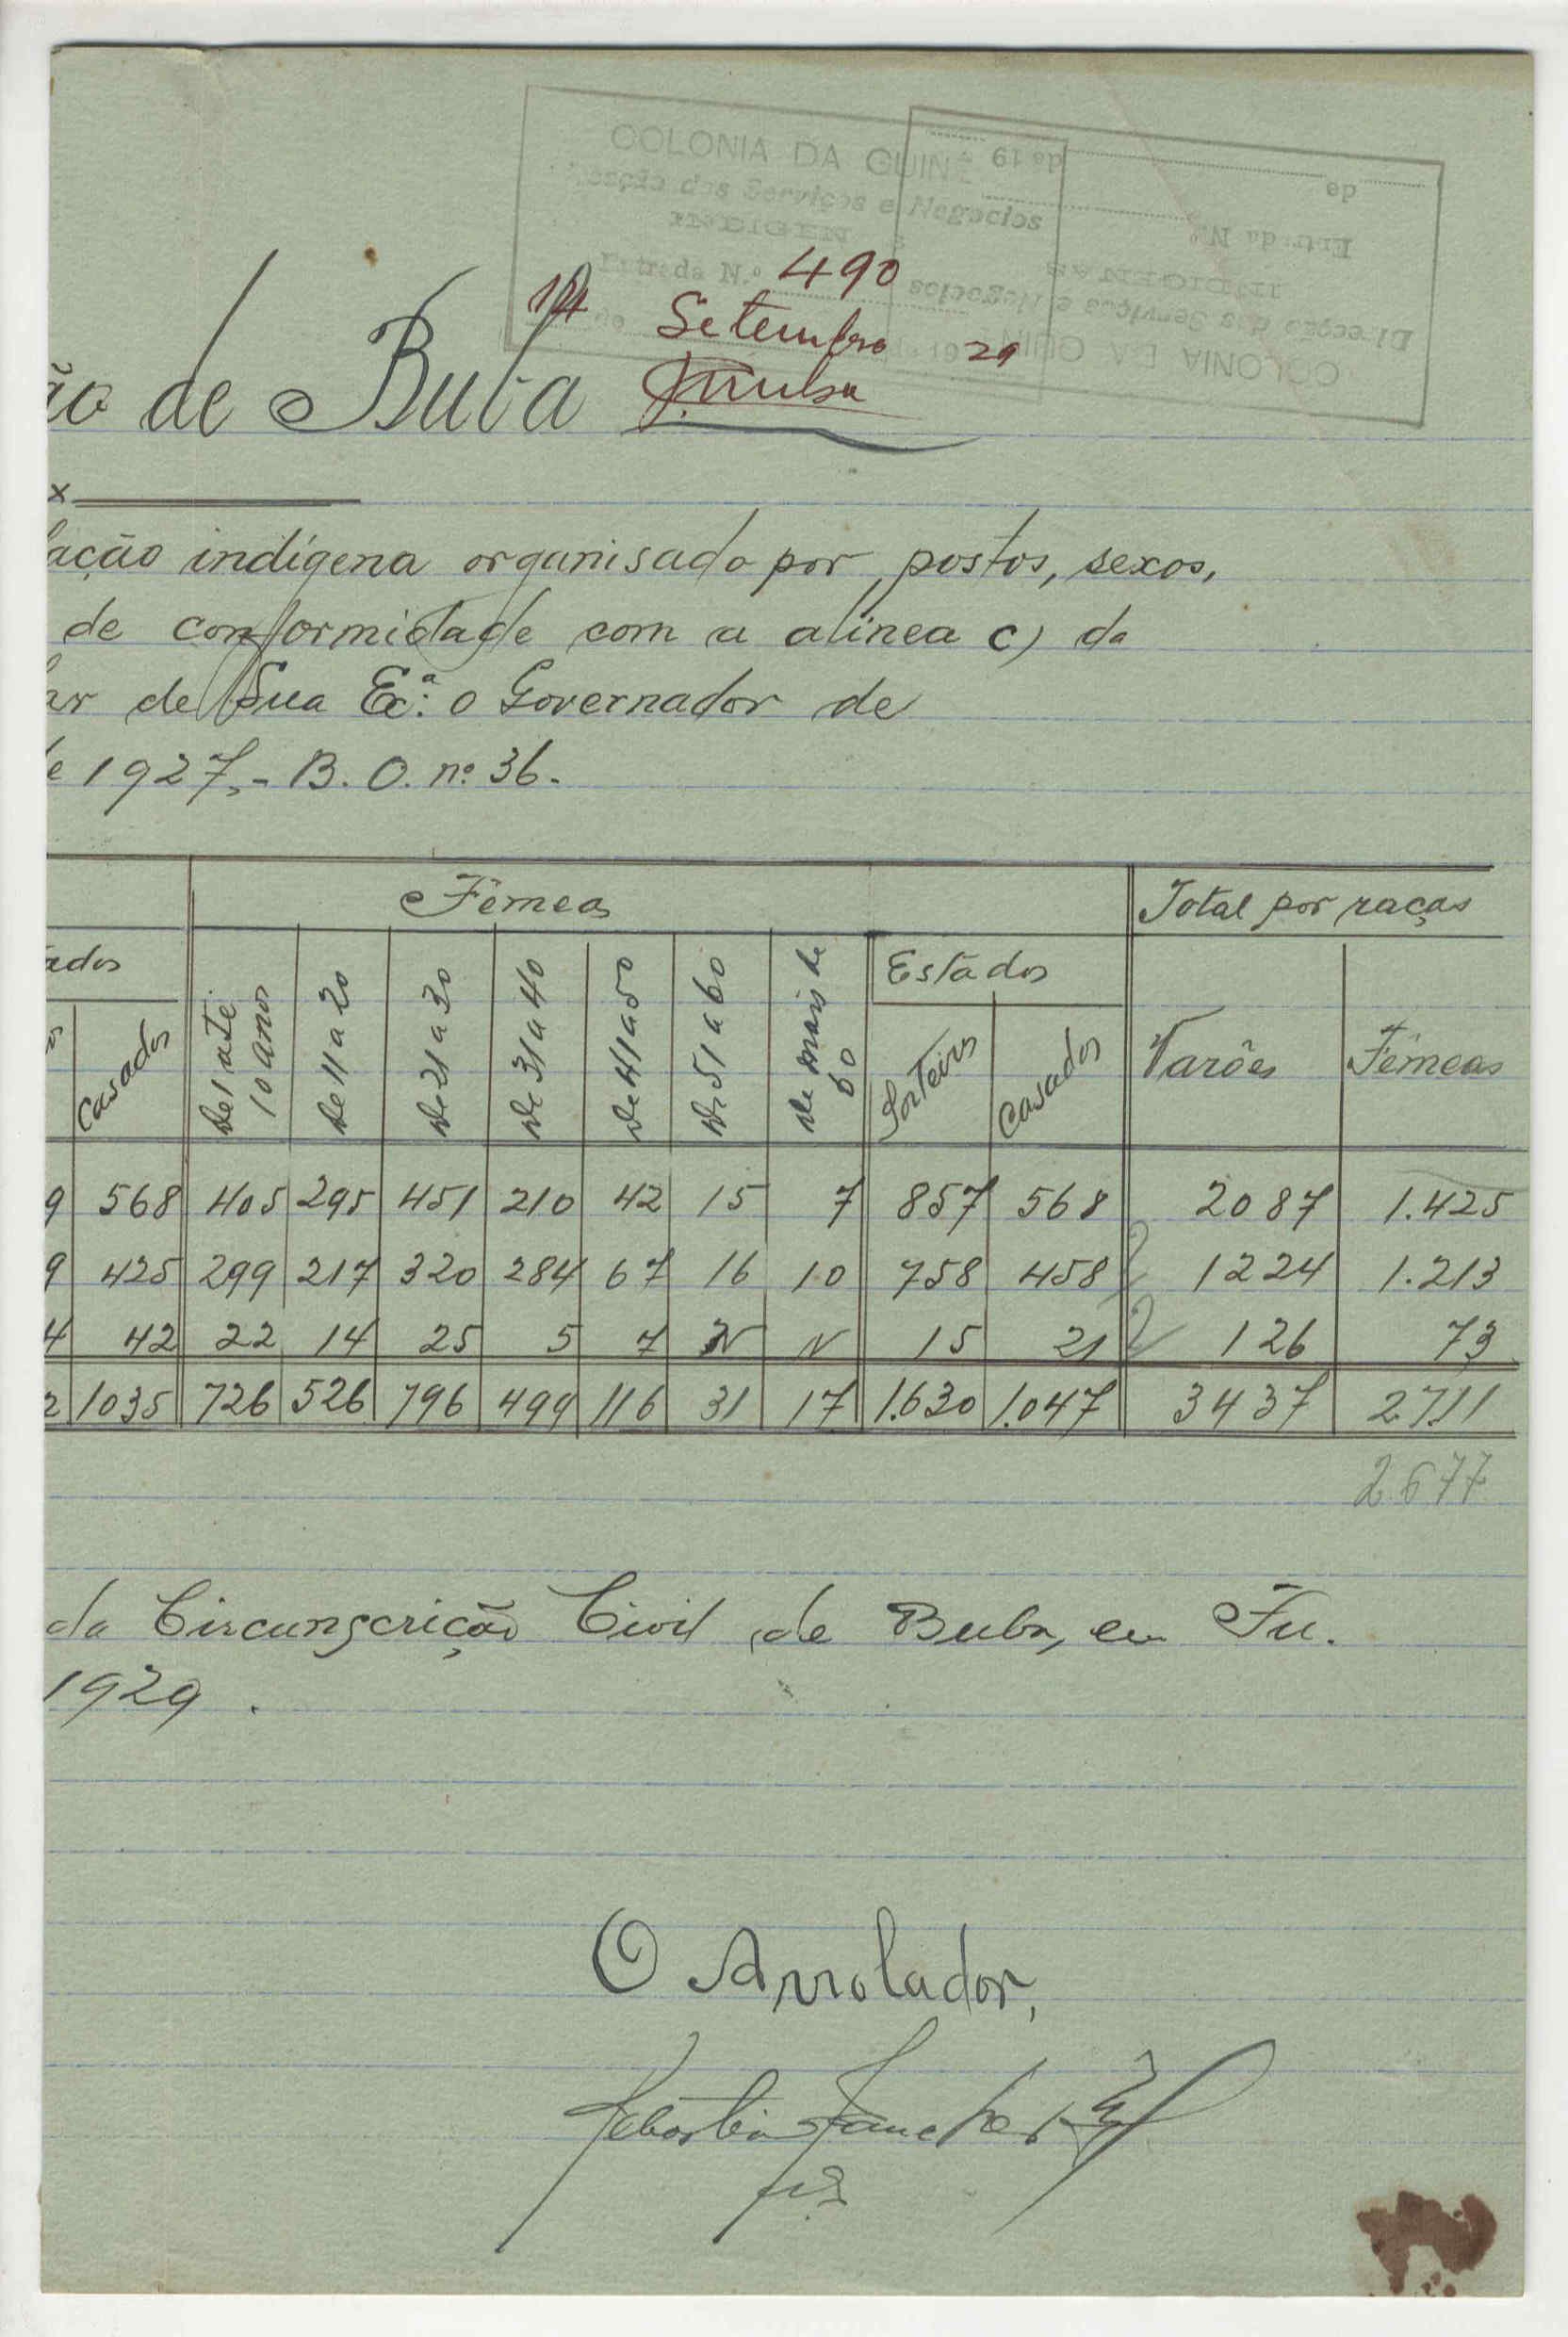 COLONIA DA GUINÉ
Serviços e Negocios
INDIGENAS
Entrada N.º 490
14 Setembro 29
COLONIA DA GUINÉ
Direcção dos Serviços e Negocios
INDIGENAS
Entrada Nº
de de 19
ão de Buba
x
lação indígena organisado por, postos, sexos,
de conformidade com a alínea c) da
ar de Sua Ex.ª o Governador de
de 1927,- B. O. nº 36.
Fêmeas Total por raças
ados De 1 até 10 anos De 11 a 20 De 21 a 30 De 31 a 40 De 41 a 50 De 51 a 60 De mais de 60 Estados Varões Fêmeas
os Casados Solteiros Casados
9 568 405 295 451 210 42 15 7 857 568 2087 1.425
9 425 299 217 320 284 67 16 10 758 458 1224 1.213
4 42 22 14 25 5 7 N N 15 21 126 73
2 1035 726 526 796 499 116 31 17 1.630 1.047 3437 2711
2677
da Circunscrição Civil de Buba, em Fu.
1929.
O Arrolador,